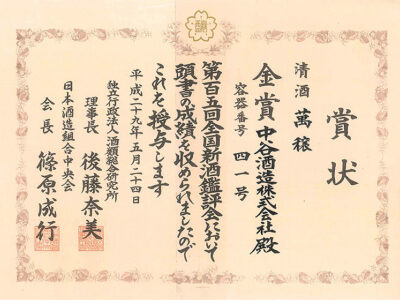 賞状
清酒 萬穣
金賞 中谷酒造株式会社殿
容器番号 四一号
第百五回全国新酒鑑評会において
頭書の成績を収められましたので
これを授与します
平成二十九年五月二十四日
独立行政法人酒類総合研究所
理事長 後藤奈美
日本酒造組合中央会
会長 篠原成行